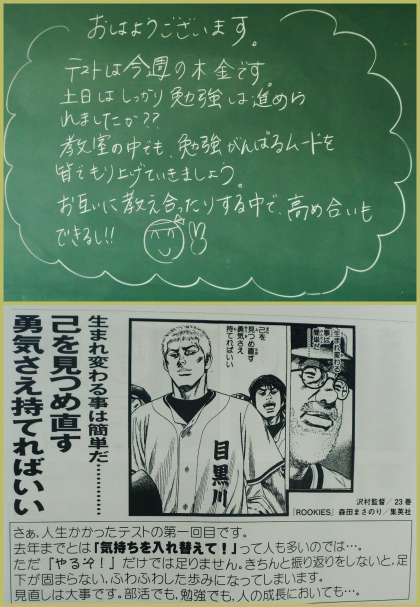 おはようございます。
テストは今週の木金です。
土日はしっかり勉強は進められ
れましたか??
教室の中でも、勉強がんばるムードを
皆でもり上げていきましょう。
お互いに教え合ったりする中で、高め合いも
できるし!!
生まれ変わる事は簡単だ…………
己を見つめ直す
勇気さえ持てればいい
生まれ変わる
事は
簡単だ
己を
見つめ直す
勇気さえ
持てればいい
目黒川
沢村監督/23巻
「ROOKIES」森田まさのり/集英社
さぁ、人生かかったテストの第一回目です。
去年までとは「気持ちを入れ替えて!」って人も多いのでは…。
ただ「やるぞ!」だけでは足りません。きちんと振り返りをしないと、足
下が固まらない、ふわふわした歩みになってしまいます。
見直しは大事です。部活でも、勉強でも、人の成長においても…。